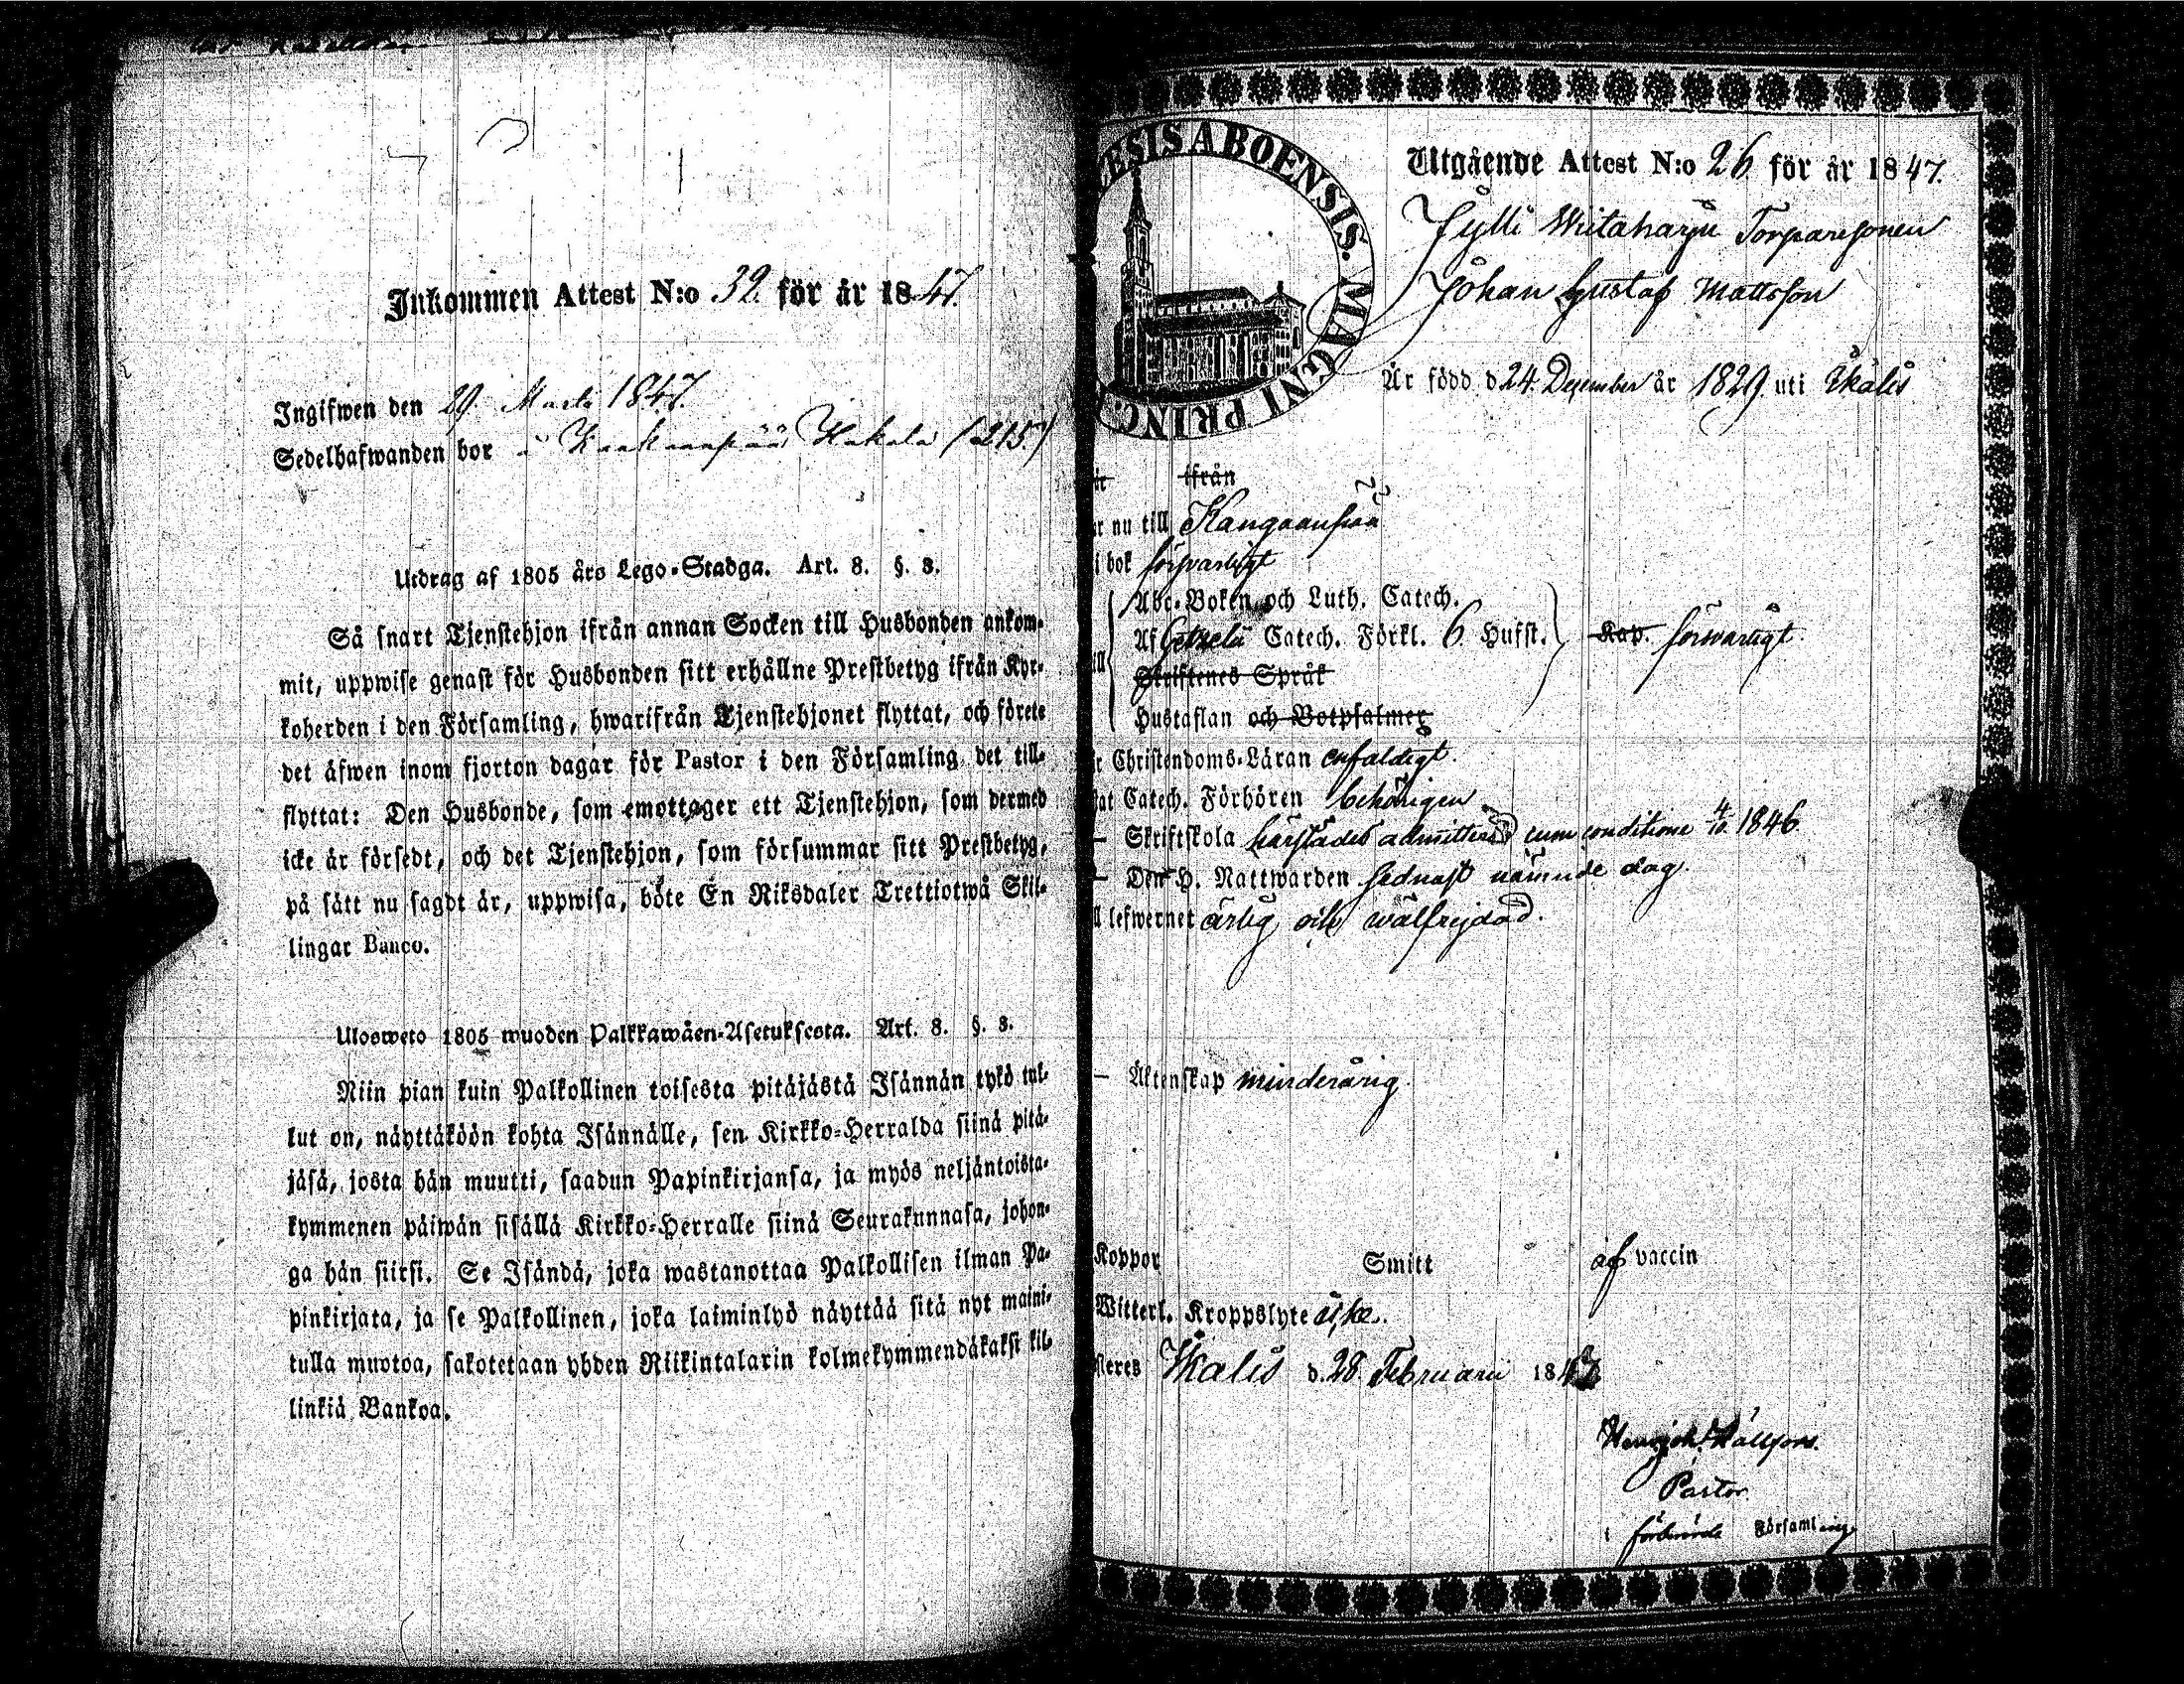 Inkommen Attest N:o 32. för år 1847.
Ingifwen den 29. Marti 1847.
Sedelhafwanden bor i Kankaanpää Hakala (215.)
Utdrag af 1805 års Lego-Stadga. Art. 8. §. 8.
Så snart Tjenstehjon ifrån annan Socken till Husbonden ankom-
mit, uppwise genast för Husbonden sitt erhållne Prestbetyg ifrån Kyr-
koherden i den Församling, hwarifrån Tjenstehjonet flyttat, och förete
det äfwen inom fjorton dagar för Pastor i den Församling det till-
flyttat: Den Husbonde, som emottager ett Tjenstehjon, som dermed
icke är försedt, och det Tjenstehjon, som försummar sitt Prestbetyg,
på sätt nu sagdt är, uppwisa, böte En Riksdaler Trettiotwå Skil-
lingar Banco.
Ulosweto 1805 wuoden Palkkawäen-Asetuksesta. Art. 8. §. 8.
Niin pian kuin Palkollinen toisesta pitäjästä Isännän tykö tul-
lut on, näyttäköön kohta Isännälle, sen Kirkko-Herralda siinä pitä-
jäsä, josta hän muutti, saadun Papinkirjansa, ja myös neljäntoista-
kymmenen päiwän sisällä Kirkko-Herralle siinä Seurakunnasa, johon-
ga hän siirsi. Se Isändä, joka wastanottaa Palkollisen ilman Pa-
pinkirjata, ja se Palkollinen, joka laiminlyö näyttää sitä nyt maini-
tulla muotoa, sakotetaan yhden Riikintalarin kolmekymmendäkaksi kil-
linkiä Bankoa.
ESIS ABOENSIS. MAGNI PRINC.
Utgående Attest N:o 26 för år 1847.
Jylli Wiitaharju Torparesonen
Johan Gustaf Mattsson
Är född d 24 December år 1829 uti Ikalis
ifrån
r nu till Kangaanpää
i bok försvarligt
Abc-Boken och Luth. Catech.
Af Gezelii Catech. Förkl. 6 Hufst. Kap. förswarligt.
Skriftenes Språk
Hustaflan och Botpsalmer
r Christendoms-Läran enfaldigt.
at Catech. Förhören behörigen
– Skriftskola härstädes admitterad cum conditione 4/10. 1846.
– Den H. Nattwarden sednast nämnde dag.
l lefwernet ärlig och wälfrejdad.
– Äktenskap minderårig.
Koppor Smitt af vaccin
Witterl. Kroppslyte ej ke.
steres Ikalis d. 28. Februarii 1847
Pastor
i förberörde Församling